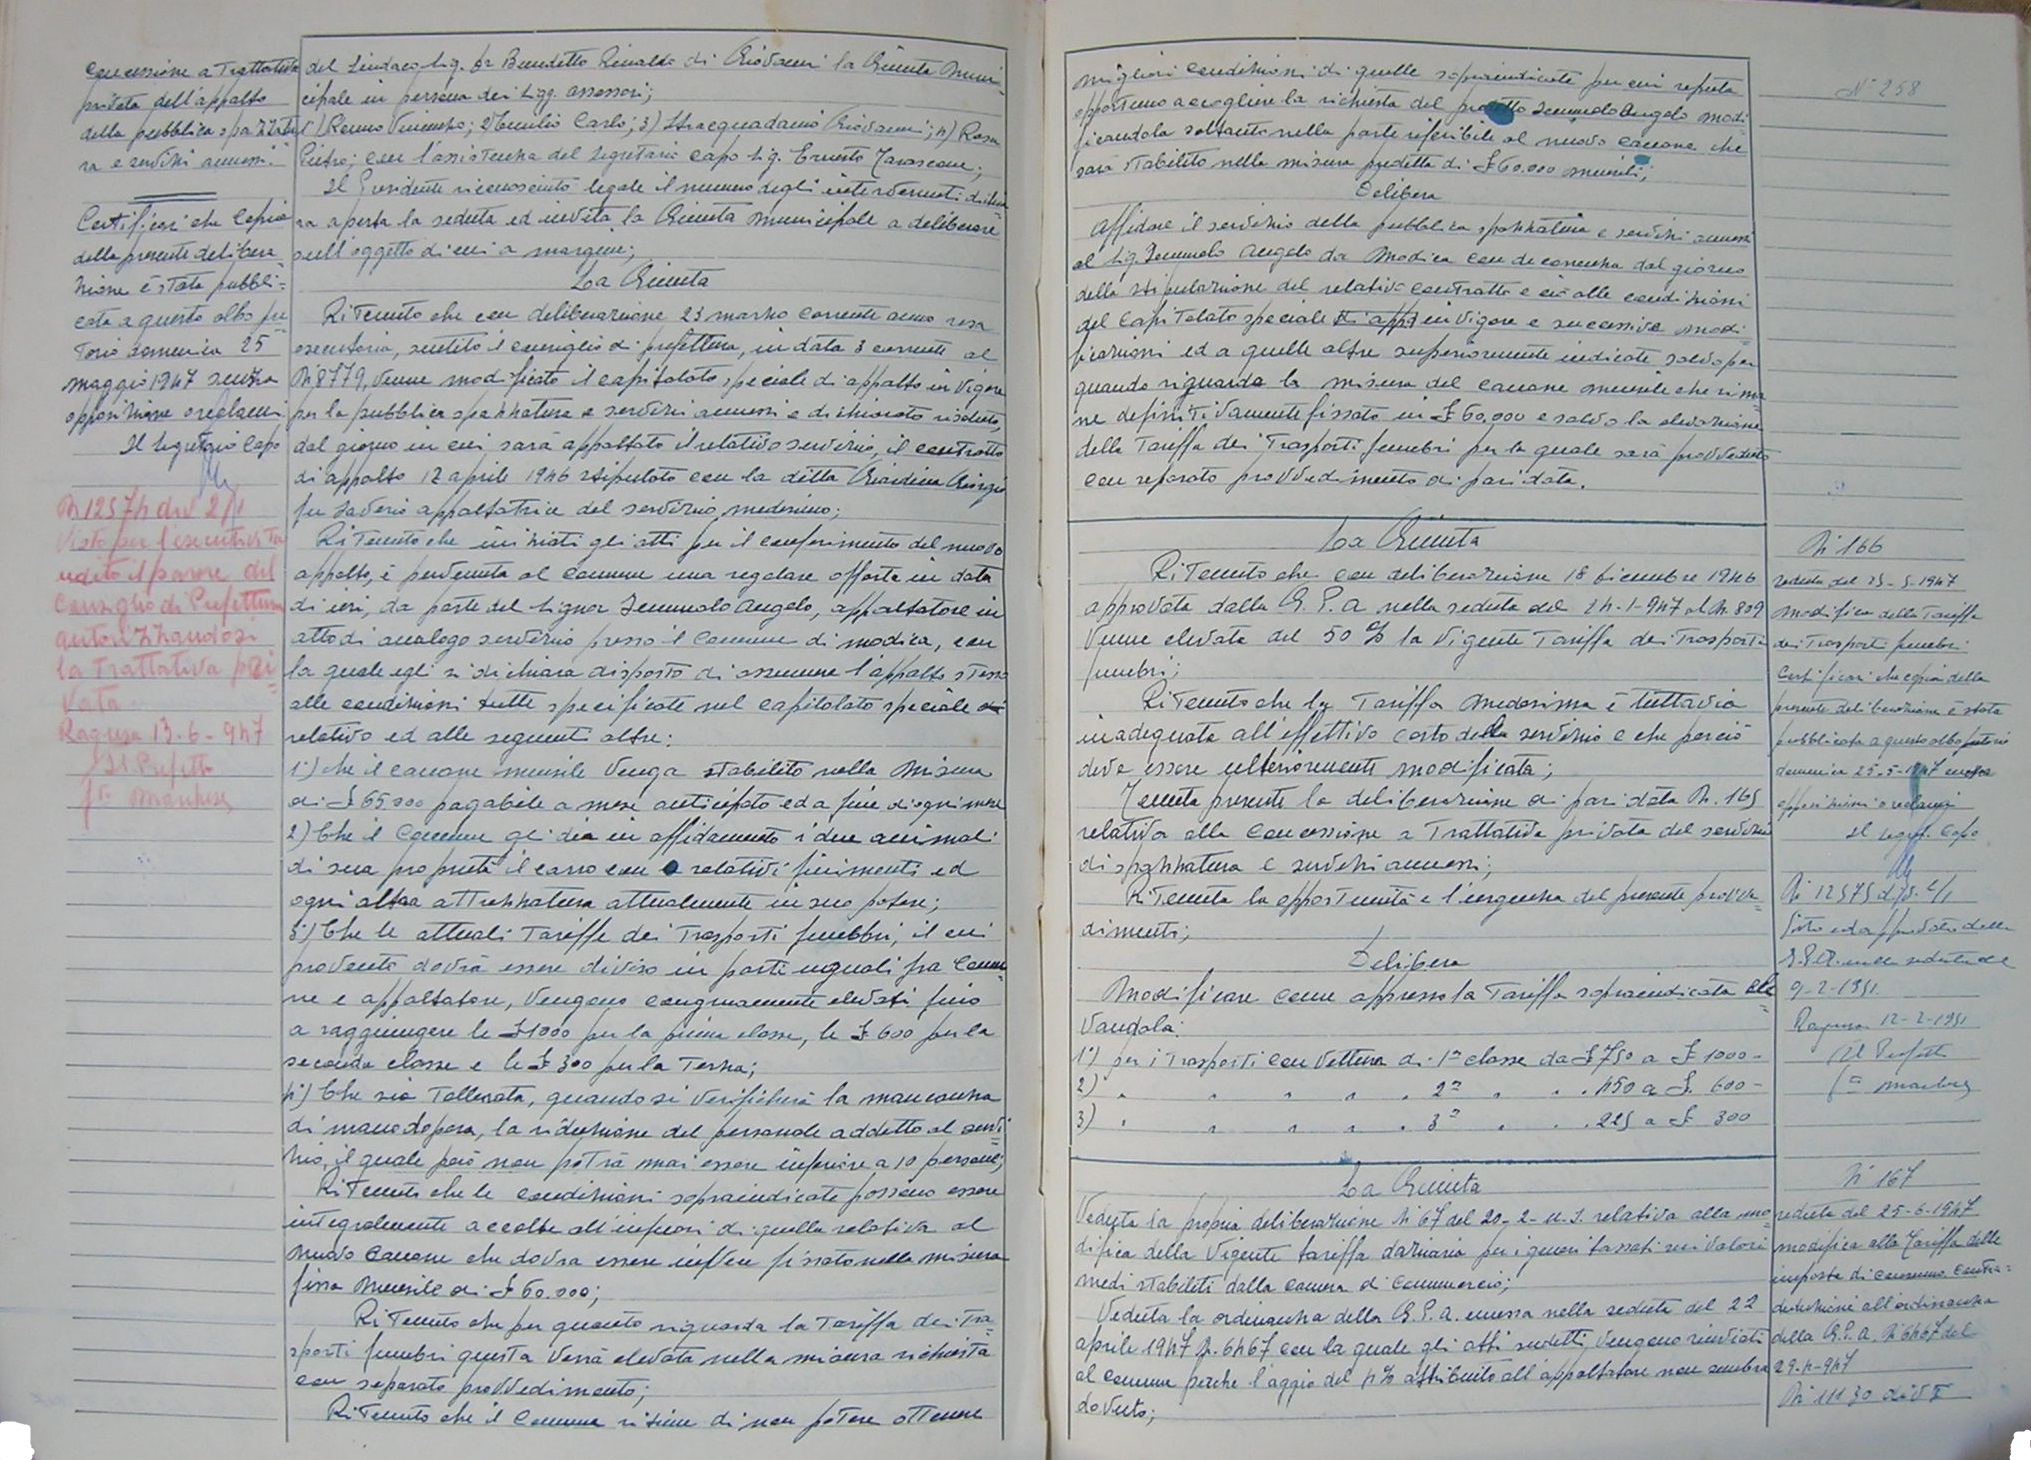 Concessione a Trattativa
privata dell'appalto
della pubblica spazzatu
ra e servizi annessi.
Certificasi che copia
della presente delibera
zione è stata pubbli=
cata a questo albo pre
torio domenica 25
maggio 1947 senza
opposizione o reclami
Il Segretario Capo
N 12574 div 2/1
Visto per l'esecutività
udito il parere del
Consiglio di Prefettura
autorizzandosi
la trattativa pri=
vata.
Ragusa 13-6-947
Il Prefetto
del Sindaco Sig. Benedetto Rinaldo di Giovanni la Giunta Muni=
cipale in persona dei Sigg. assessori;
Vincenzo; 2) Carlo; 3) Stracquadanio Giovanni; 4)
Pietro; con l'assistenza del Segretario capo Sig. Ernesto Tarascone;
Il Presidente riconosciuto legale il numero degli intervenuti dichia
ra aperta la seduta ed invita la Giunta Municipale a deliberare
sull'oggetto di cui a margine;
La Giunta
Ritenuto che con deliberazione 23 marzo corrente anno resa
esecutoria, sentito il consiglio di prefettura, in data 3 corrente al
N 8779, venne modificato il capitolato speciale di appalto in vigore
per la pubblica spazzatura e servizi annessi e dichiarato risoluto,
dal giorno in cui sarà appaltato il relativo servizio, il contratto
di appalto 12 aprile 1946 stipulato con la ditta Giardina Giorgio
fu Saverio appaltatrice del servizio medesimo;
Ritenuto che iniziati gli atti per il conferimento del nuovo
appalto, è pervenuta al comune una regolare offerta in data
di ieri, da parte del Signor Iemmolo Angelo, appaltatore in
atto di analogo servizio presso il Comune di Modica, con
la quale egli si dichiara disposto di assumere l'appalto stesso
alle condizioni tutte specificate nel capitolato speciale
relativo ed alle seguenti altre:
1°) che il canone mensile venga stabilito nella misura
di £ 65000 pagabile a mese anticipato ed a fine di ogni mese
2) Che il Comune gli dia in affidamento i due animali
di sua proprietà il carro con relativi finimenti ed
ogni altra attrezzatura attualmente in suo potere;
3°) Che le attuali Tariffe dei Trasporti funebbri, il cui
provento dovrà essere diviso in parti uguali fra Comu=
ne e appaltatore, vengano congruamente elevati fino
a raggiungere le £ 1000 per la prima classe, le £ 600 per la
seconda classe e le £ 300 per la Terza;
4°) Che sia Tollerata, quando si verificherà la mancanza
di mano d'opera, la riduzione del personale addetto al servi=
zio, il quale però non potrà mai essere inferiore a 10 persone;
Ritenuto che le condizioni sopraindicate possono essere
integralmente accolte all'infuori di quella relativa al
nuovo canone che dovrà essere invece fissato nella misura
fissa mensile di £ 60.000;
Ritenuto che per quanto riguarda la Tariffa dei Tra=
sporti funebri questa verrà elevata nella misura richiesta
con separato provvedimento;
Ritenuto che il Comune ritiene di non potere ottenere
N° 258
migliori condizioni di quelle sopraindicate per cui reputa
opportuno accogliere la richiesta del predetto Iemmolo Angelo modi=
ficandola soltanto nella parte riferibile al nuovo canone che
sarà stabilito nella misura predetta di £ 60.000 mensili;
Delibera
Affidare il servizio della pubblica spazzatura e servizi annessi
al Sig. Iemmolo Angelo da Modica con decorrenza dal giorno
della stipulazione del relativo contratto e ciò alle condizioni
del Capitolato speciale in vigore e successive modi=
ficazioni ed a quelle altre superiormente indicate salvo per
quando riguarda la misura del canone mensile che rima=
ne definitivamente fissato in £ 60.000 e salvo la elevazione
della Tariffa dei Trasporti funebri per la quale sarà provveduto
con separato provvedimento di pari data.
La Giunta
Ritenuto che con deliberazione 18 dicembre 1946
approvata dalla G.P.A nella seduta del 24-1-947 al N. 809
venne elevata del 50 % la vigente Tariffa dei Trasporti
funebri;
Ritenuto che la Tariffa medesima è tuttavia
inadeguata all'effettivo costo della servizio e che perciò
deve essere ulteriormente modificata;
Tenuta presente la deliberazione di pari data N. 165
relativa alla concessione a Trattativa privata del servizio
di spazzatura e servizi annessi;
Ritenuta la opportunità e l'urgenza del presente provve=
dimento;
Delibera
Modificare come appresso la Tariffa sopraindicata ele=
vandola:
1°) per i Trasporti con vettura di 1ª classe da £ 750 a £ 1000-
2) " " " " " 2ª " " . 450 a £. 600-
3) " " " " " 3ª " " . 225 a £ 300
La Giunta
Veduta la propria deliberazione N 67 del 20-2-u.s. relativa alla mo=
difica della vigente tariffa daziaria per i generi tassati sui valori
medi stabiliti dalla camera di Commercio;
Veduta la ordinanza della G.P.A. emessa nella seduta del 22
aprile 1947 N. 6467 con la quale gli atti sudetti vengono rinviati
al comune perché l'aggio del 4% attribuito all'appaltatore non sembra
dovuto;
N 166
seduta del 25-5-1947
Modifica della Tariffa
dei Trasporti funebri
Certificasi che copia della
presente deliberazione è stata
pubblicata a questo albo pretorio
domenica 25-5-1947 senza
opposizioni o reclami
Il Segret. Capo
N 12575 div. 2/1
Visto ed approvato dalla
G.P.A. nella seduta del
9-2-1951.
Ragusa 12-2-1951
Il Prefetto
N 167
seduta del 25-6-1947
modifica alla Tariffa delle
imposte di consumo. Contro=
deduzioni all'ordinanza
della G.P.A. N 6467 del
29-4-947
N 1130 div I